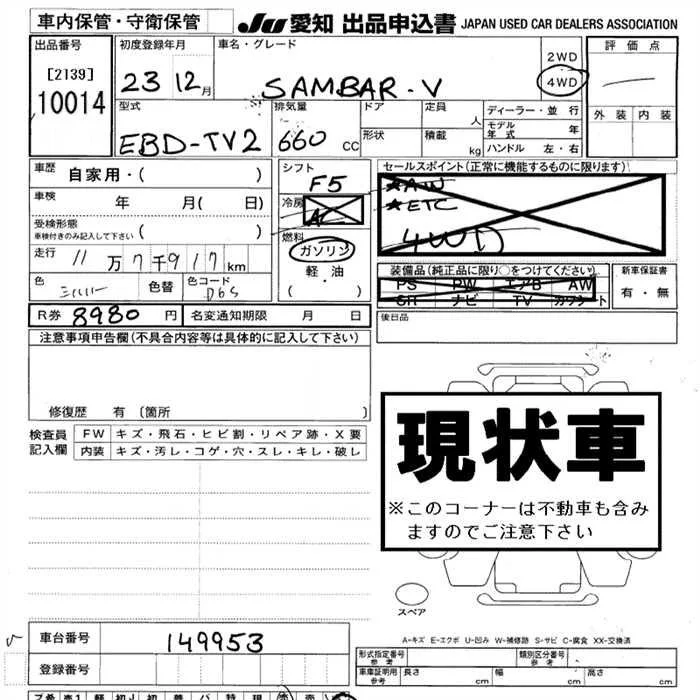 車内保管・守衛保管
JU 愛知 出品申込書 JAPAN USED CAR DEALERS ASSOCIATION
出品番号
[2139]
10014
初度登録年月
23 12月
車名・グレード
SAMBAR-V
2WD
4WD
評価点
外装 内装
型式
EBD-TV2
排気量
660 CC
ドア
形状
定員 人
積載 kg
ディーラー・並行
モデル年式 年
ハンドル 左・右
車歴 自家用・( )
車検 年 月( 日)
受検形態
車検付きのみ記入して下さい ( )
走行 11万7千917km
色 シルバー 色替 色コード D6S
シフト
F5
冷房 AC
燃料
ガソリン
軽・油
( ・ )
セールスポイント(正常に機能するものに限ります)
★AW
★ETC
4WD
装備品(純正品に限り○をつけてください)
PS PW エアB AW
SR ナビ TV カワシート
新車保証書
有・無
R券 8980 円 名変通知期限 月 日
後日品
注意事項申告欄(不具合内容等は具体的に記入して下さい)
修復歴 有〔箇所 〕
検査員
記入欄
FW キズ・飛石・ヒビ割・リペア跡・X要
内装 キズ・汚レ・コゲ・穴・スレ・キレ・破レ
現状車
※このコーナーは不動車も含み
ますのでご注意下さい
スペア
A-キズ E-エクボ U-凹み W-補修跡 S-サビ C-腐食 XX-交換済
車台番号 149953
登録番号
形式指定番号
参考
類別区分番号
参考
車庫証明用
参考
長さ cm 幅 cm 高さ cm